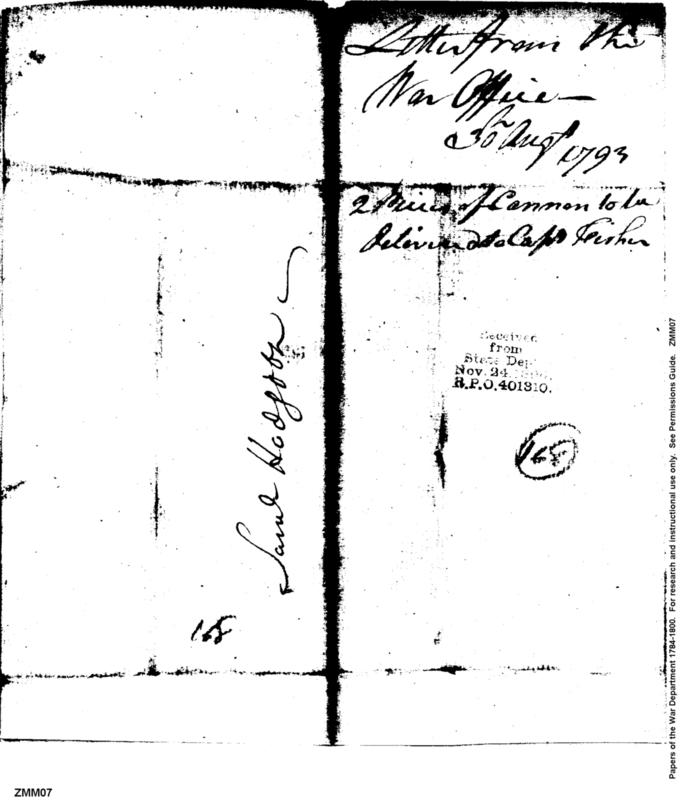 Letter from the
War Office —
30th Augt 1793
2 Pieces of Cannon to be
delivered to Capt Fisher
Received
from
State Dep
Nov. 24
R.P.O. 401310.
168
Saml Hodgdon
168
ZMM07
Papers of the War Department 1784-1800. For research and instructional use only. See Permissions Guide. ZMM07